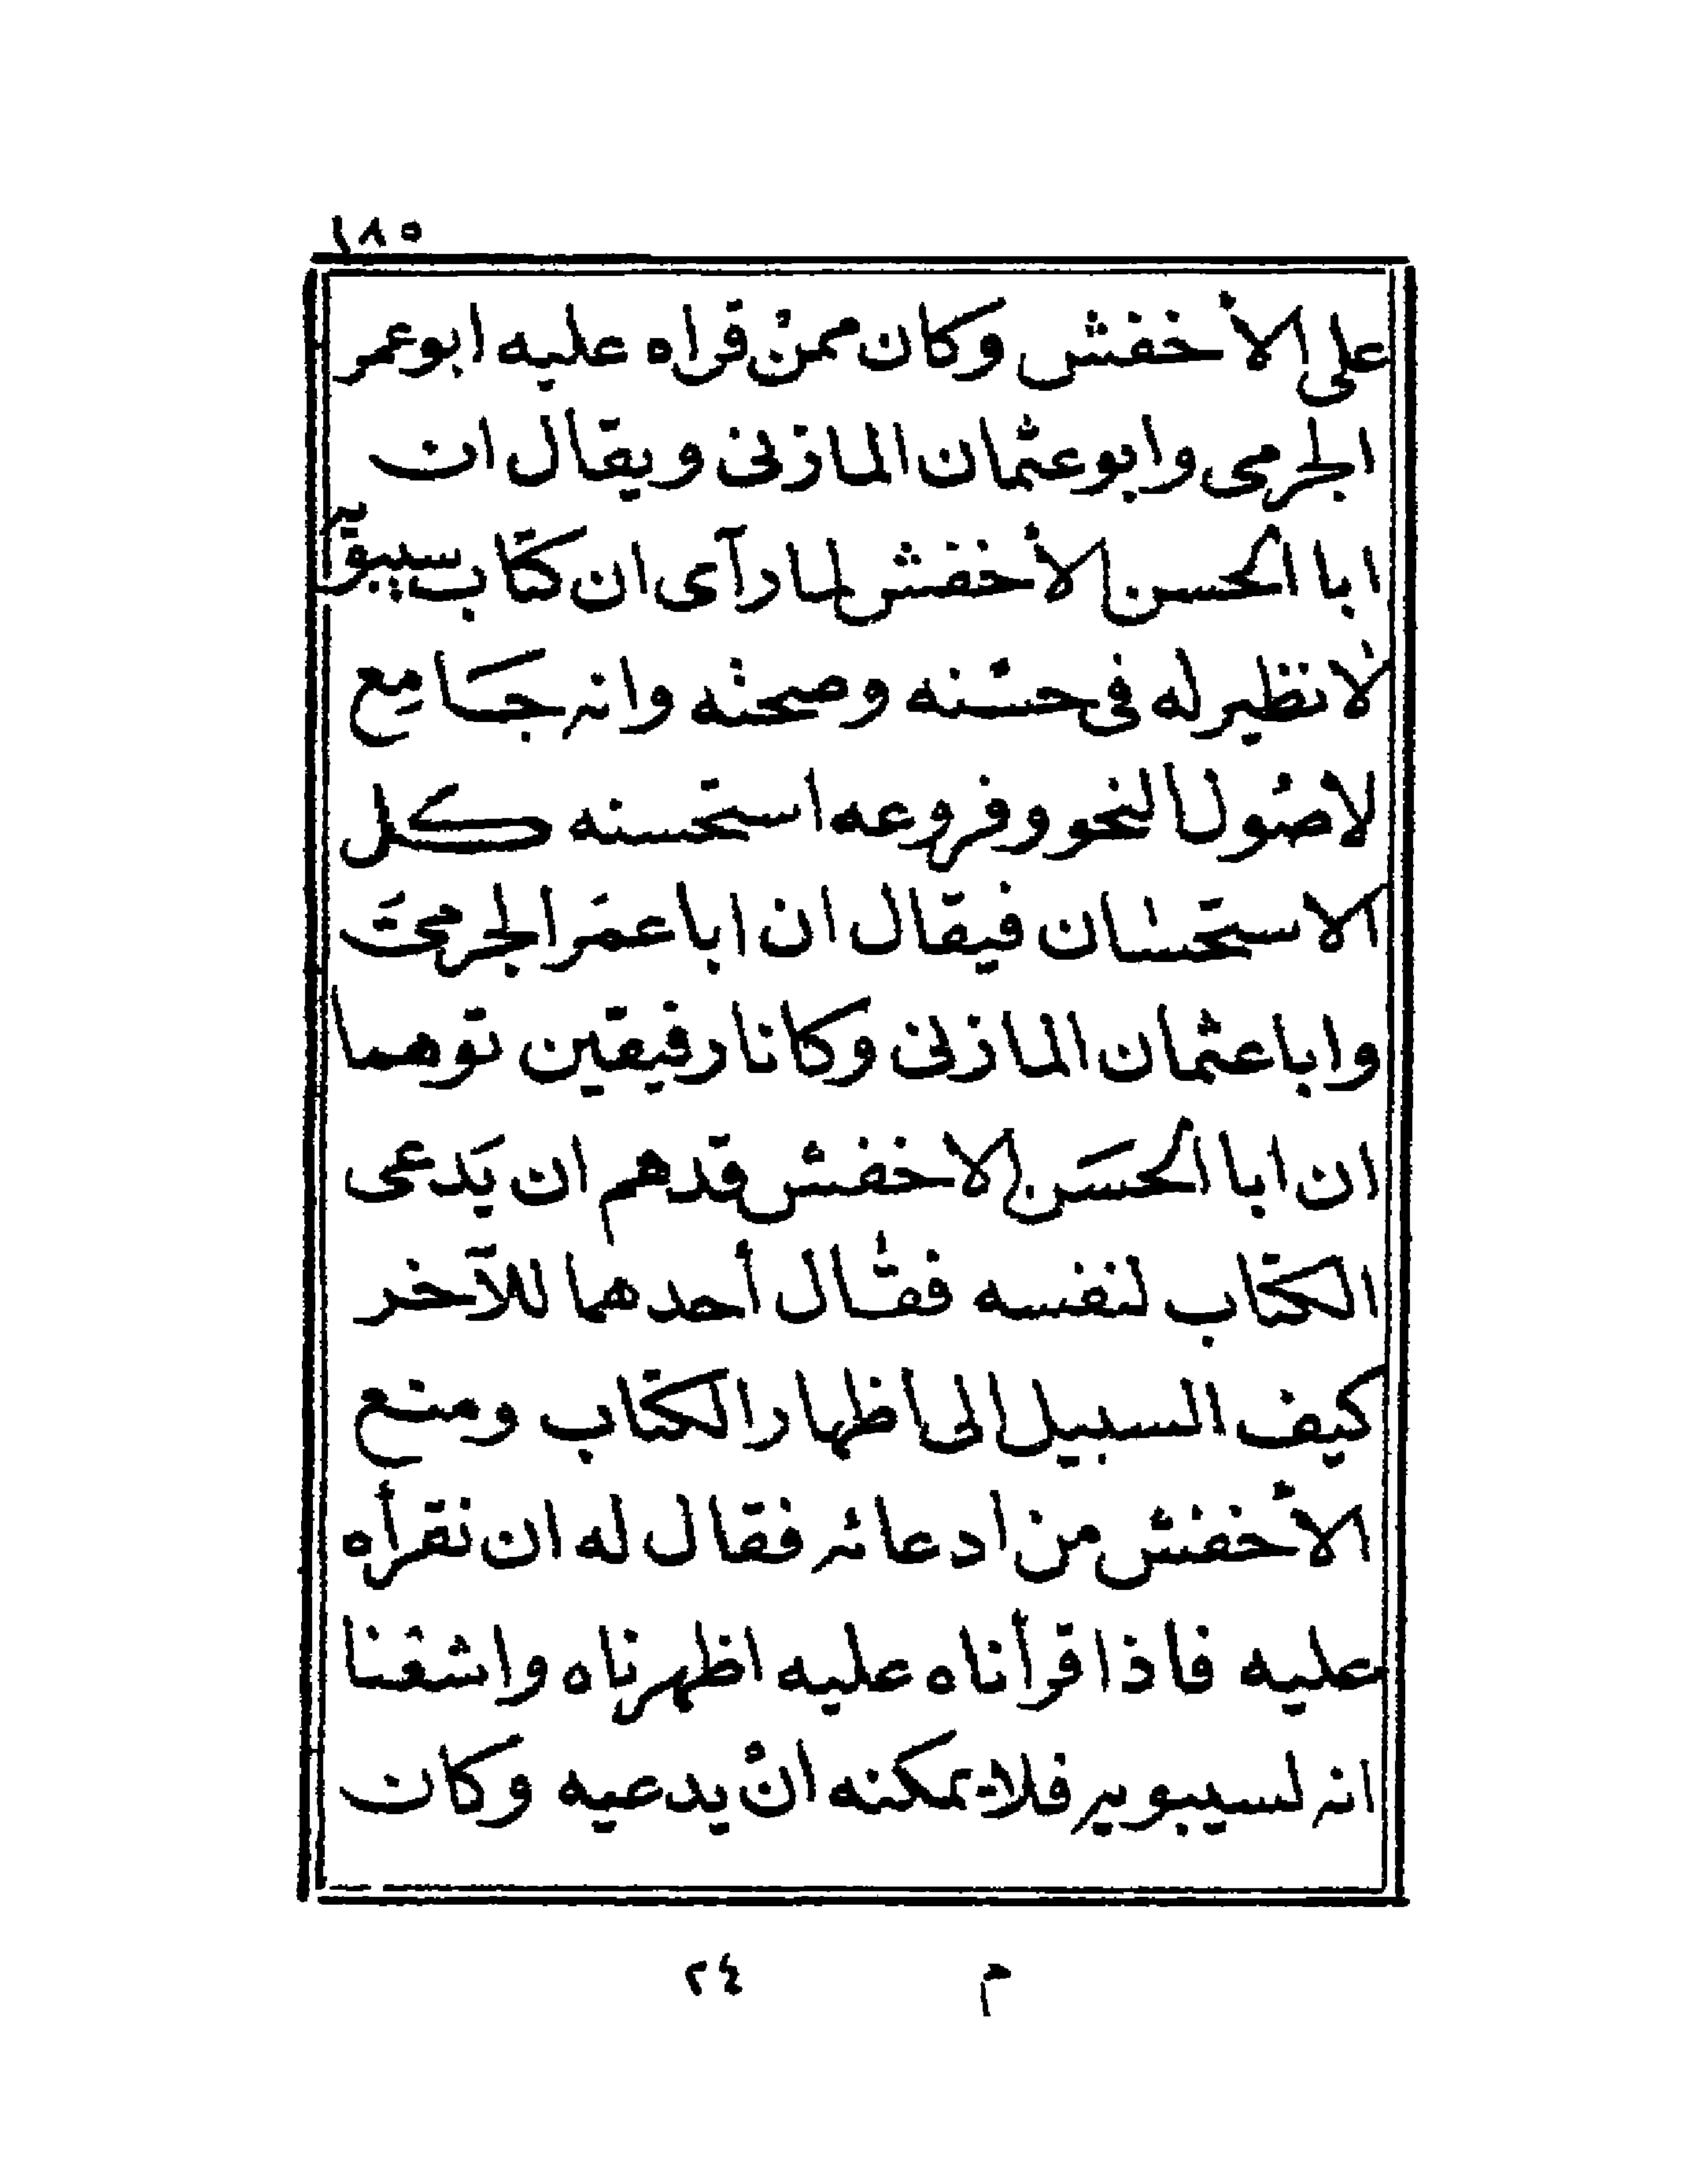 ١٨٥
على الأخفش وكان ممن قراه عليه ابو عمر
الجرمى وابو عثمان المازنى ويقال ان
ابا الحسن الأخفش لما رآى ان كتاب سيبويه
لا نظير له فى حسنه وصحته وانه جامع
لاصول النحو وفروعه استحسنه كل
الاستحسان فيقال ان ابا عمر الجرمى
وابا عثمان المازنى وكانا رفيقين توهما
ان ابا الحسن الاخفش قد هم ان يدعى
الكتاب لنفسه فقال أحدهما للآخر
كيف السبيل الى اظهار الكتاب ومنع
الأخفش من ادعائه فقال له ان نقرأه
عليه فاذا قرأناه عليه اظهرناه واشعنا
انه لسيبويه فلا يمكنه ان يدعيه وكان
م ٢٤